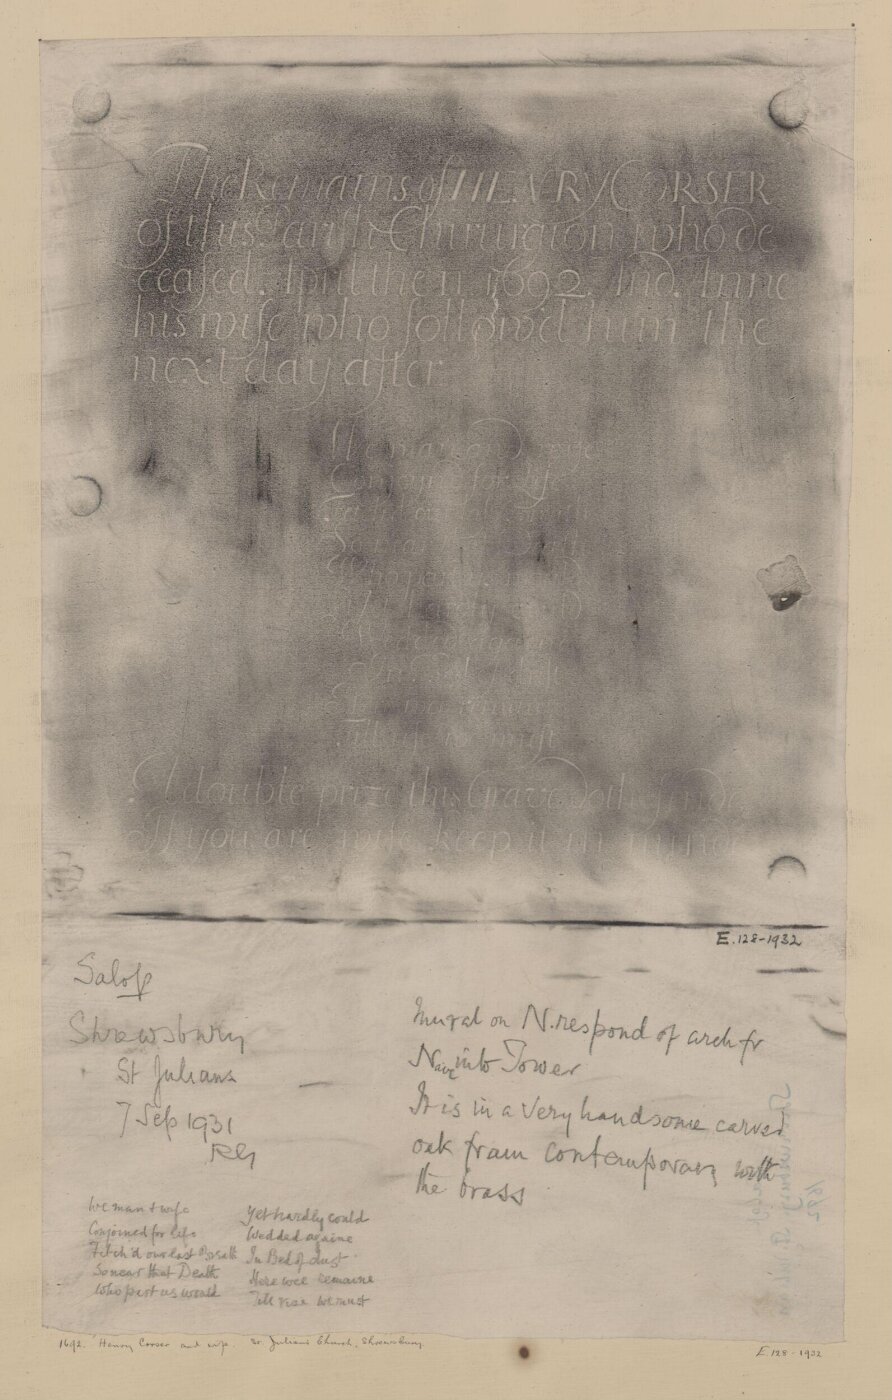 The Remains of HENRY CORSER
of this Parish Chirurgion who de
ceased April the 11 1692 And Anne
his wife who follow'd him the
next day after
We man and wife
Conjoin'd for life
who part us would
Yet hardly could
Wedded againe
In bed of dust
Here we remaine
Till rise we must
A double prize this Grave doth finde
If you are wise keep it in minde
E.128-1932
Salop
Shrewsbury
St Julians
7 Sep 1931
Mural on N. respond of arch fr
Nave into Tower
It is in a very handsome carved
oak fram contemporary with
the brass
We man & wife
Conjoined for life
Fetch'd our last Breath
So near that Death
Who part us would
Yet hardly could
Wedded againe
In Bed of dust
Here wee remaine
Till rise we must
1692. Henry Corser and wife. St. Julian's Church, Shrewsbury.
E 128-1932